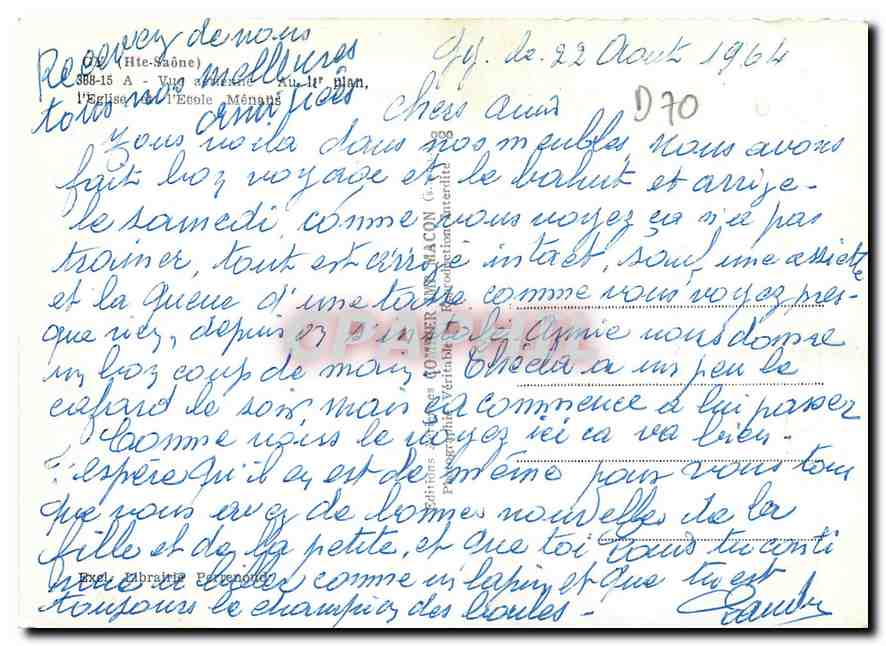 Gy. le. 22 Aout 1964
D70
GY (Hte-Saône)
398-15 A - Vue aérienne - Au 1er plan,
l'Eglise et l'Ecole Ménans
chers amis
Vous voila dans nos meubles, nous avons
fait bon voyage et le bahut et arrive
le samedi, comme vous voyez ca n'a pas
trainer, tout est arrivé intact, sauf une assiette
et la queue d'une tasse comme vous voyez pres-
que rien, depuis on s'instale Annie nous donne
un bon coup de main Thécla a un peu le
cafard le soir mais ca commence a lui passer
Comme vous le voyez ici ca va bien -
J'espère qu'il en est de même pour vous tous
que vous avez de bonne nouvelle de la
fille et de la petite, et que toi Louis tu conti
nue a comme un lapin et que tu est
toujours le champion des boules -
Recevez de nous
tous nos meilleures
amitiés
Editions COMBIER IMP. MACON
Photographie Véritable - Reproduction interdite
Excl. Librairie Perrenoud
CPARAMA